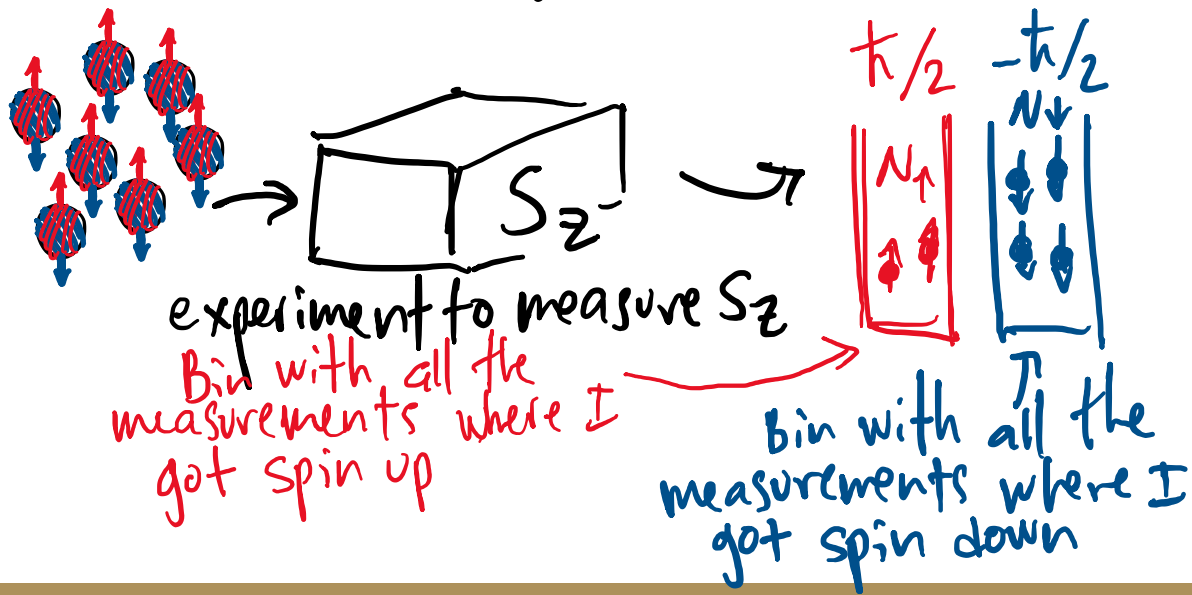 ħ/2
-ħ/2
N↑
N↓
S_z
experiment to measure S_z
Bin with all the
measurements where I
got spin up
Bin with all the
measurements where I
got spin down